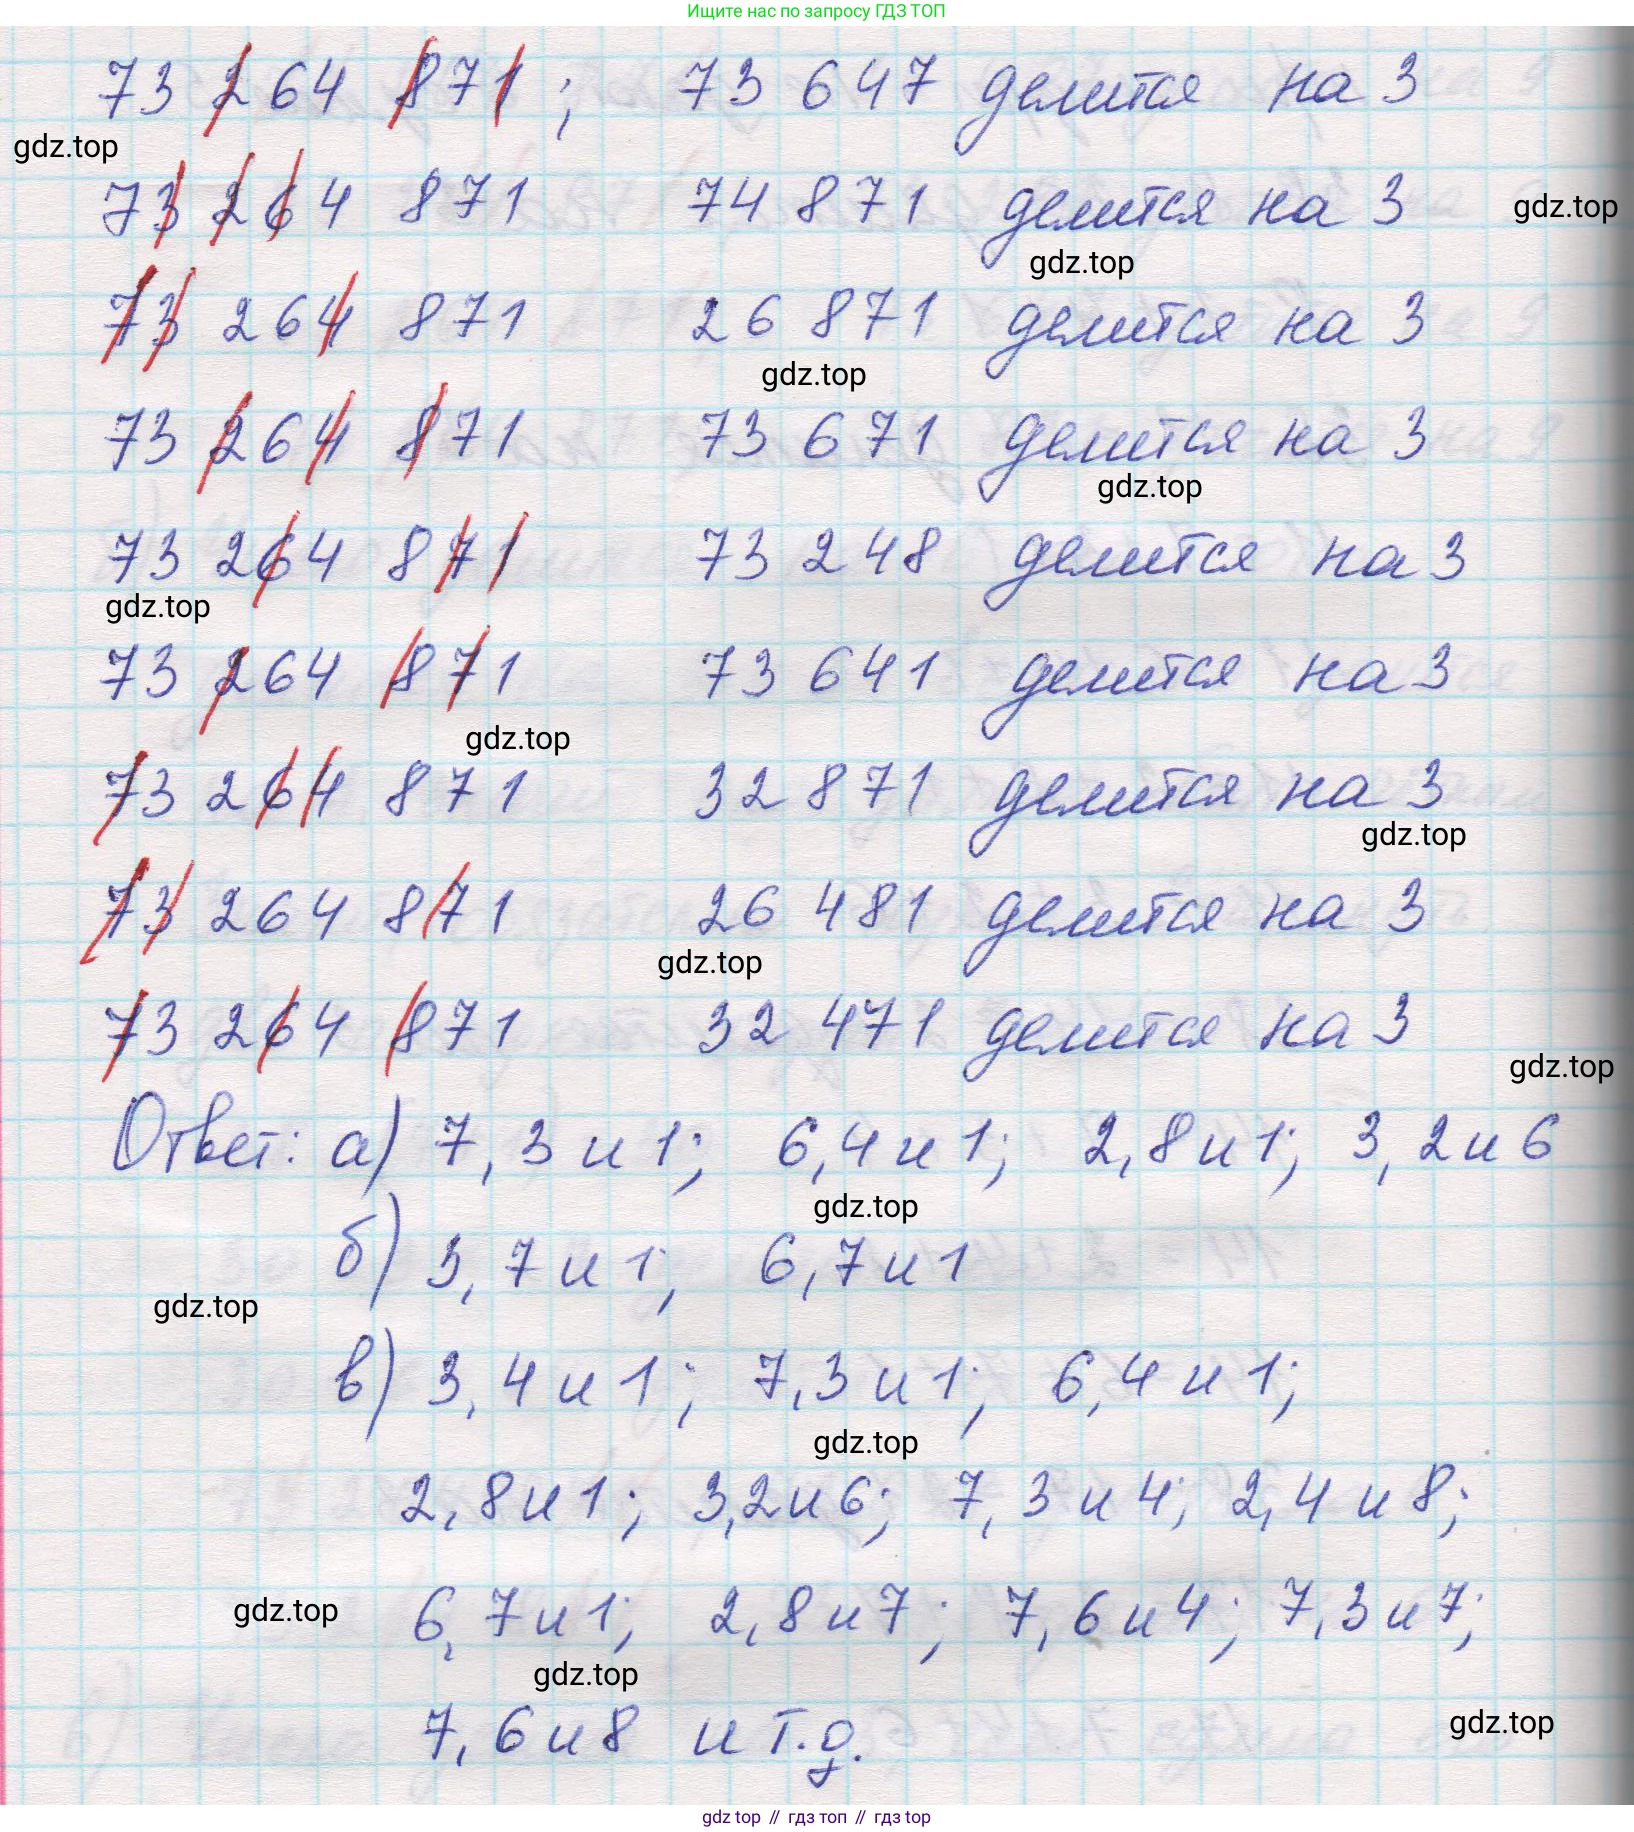 Ищите нас по запросу ГДЗ ТОП
73 264 871; 73 647 делится на 3
gdz.top
73 264 871 74 871 делится на 3
gdz.top
gdz.top
73 264 871 26 871 делится на 3
gdz.top
73 264 871 73 671 делится на 3
gdz.top
73 264 871 73 248 делится на 3
gdz.top
73 264 871 73 641 делится на 3
gdz.top
73 264 871 32 871 делится на 3
gdz.top
73 264 871 26 481 делится на 3
gdz.top
73 264 871 32 471 делится на 3
gdz.top
Ответ: а) 7, 3 и 1; 6, 4 и 1; 2, 8 и 1; 3, 2 и 6
gdz.top
б) 3, 7 и 1; 6, 7 и 1
gdz.top
в) 3, 4 и 1; 7, 3 и 1; 6, 4 и 1;
gdz.top
2, 8 и 1; 3, 2 и 6; 7, 3 и 4; 2, 4 и 8;
gdz.top
6, 7 и 1; 2, 8 и 7; 7, 6 и 4; 7, 3 и 7;
gdz.top
7, 6 и 8 и т.д.
gdz.top
gdz top // гдз топ // гдз top